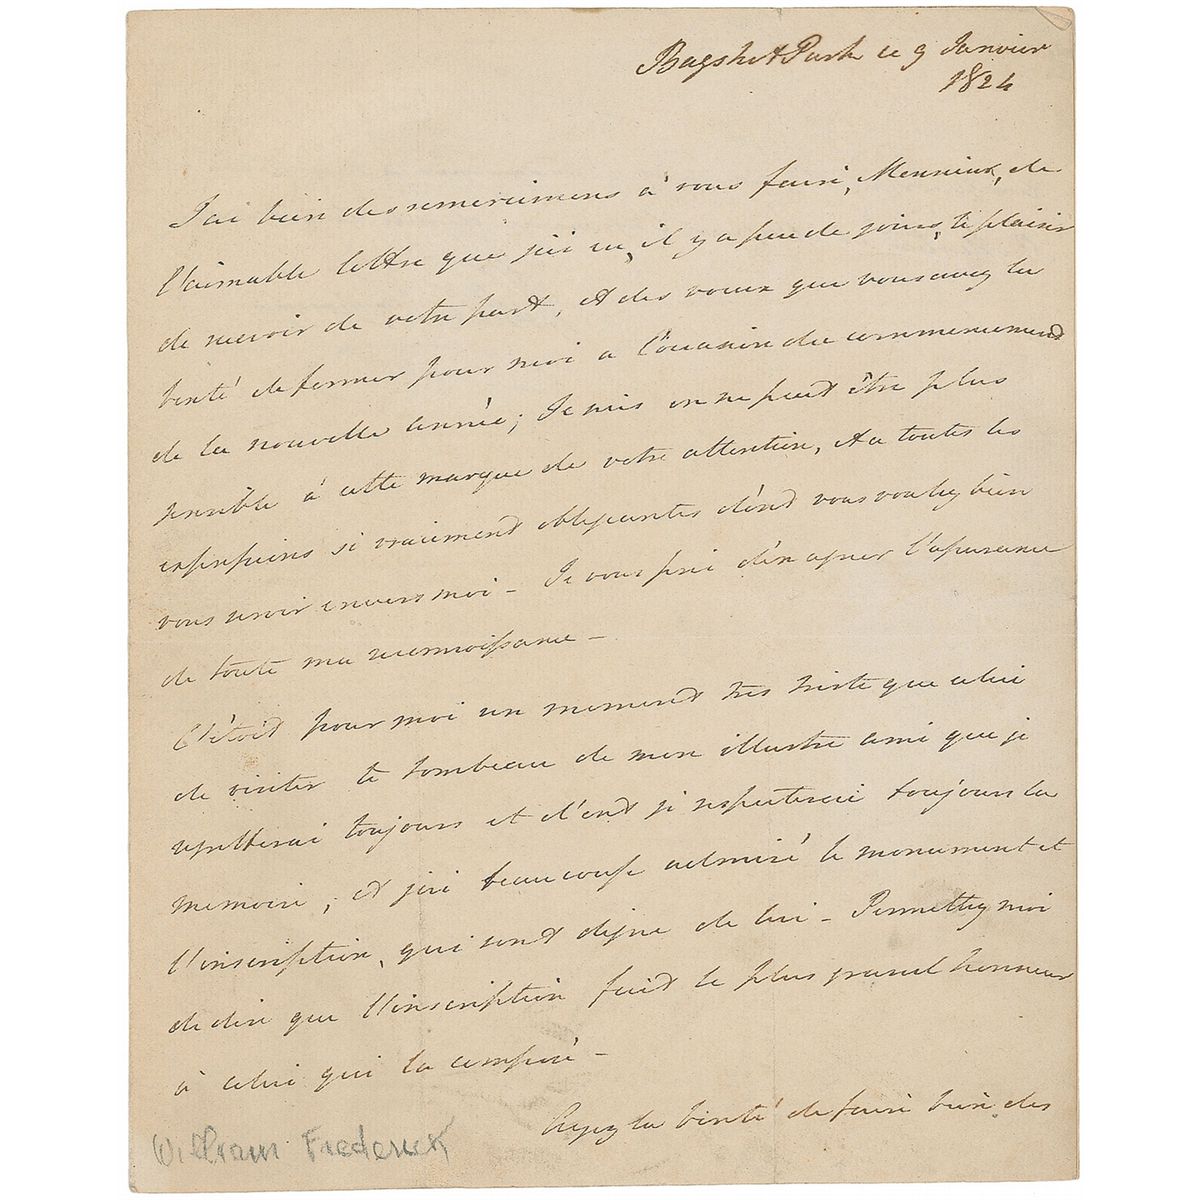 Bagshot Park ce 9 Janvier
1824
J'ai bien des remercimens à vous faire, Monsieur, de
l'aimable lettre que j'ai eu, il y a peu de jours, le plaisir
de recevoir de votre part, et des voeux que vous avez la
bonté de former pour moi a l'occasion du commencement
de la nouvelle année; Je suis on ne peut être plus
sensible à cette marque de votre attention, et a toutes les
expressions si vraiment obligeantes dont vous voulez bien
vous servir envers moi – Je vous prie d'en agréer l'assurance
de toute ma reconnoissance –
C'étoit pour moi un moment très triste que celui
de visiter le tombeau de mon illustre ami que je
regretterai toujours et dont je respecterai toujours la
memoire; et j'ai beaucoup admiré le monument et
l'inscription, qui sont digne de lui – Permettez moi
de dire que l'inscription fait le plus grand honneur
à celui qui l'a composé –
Ayez la bonté de faire bien des
William Frederick